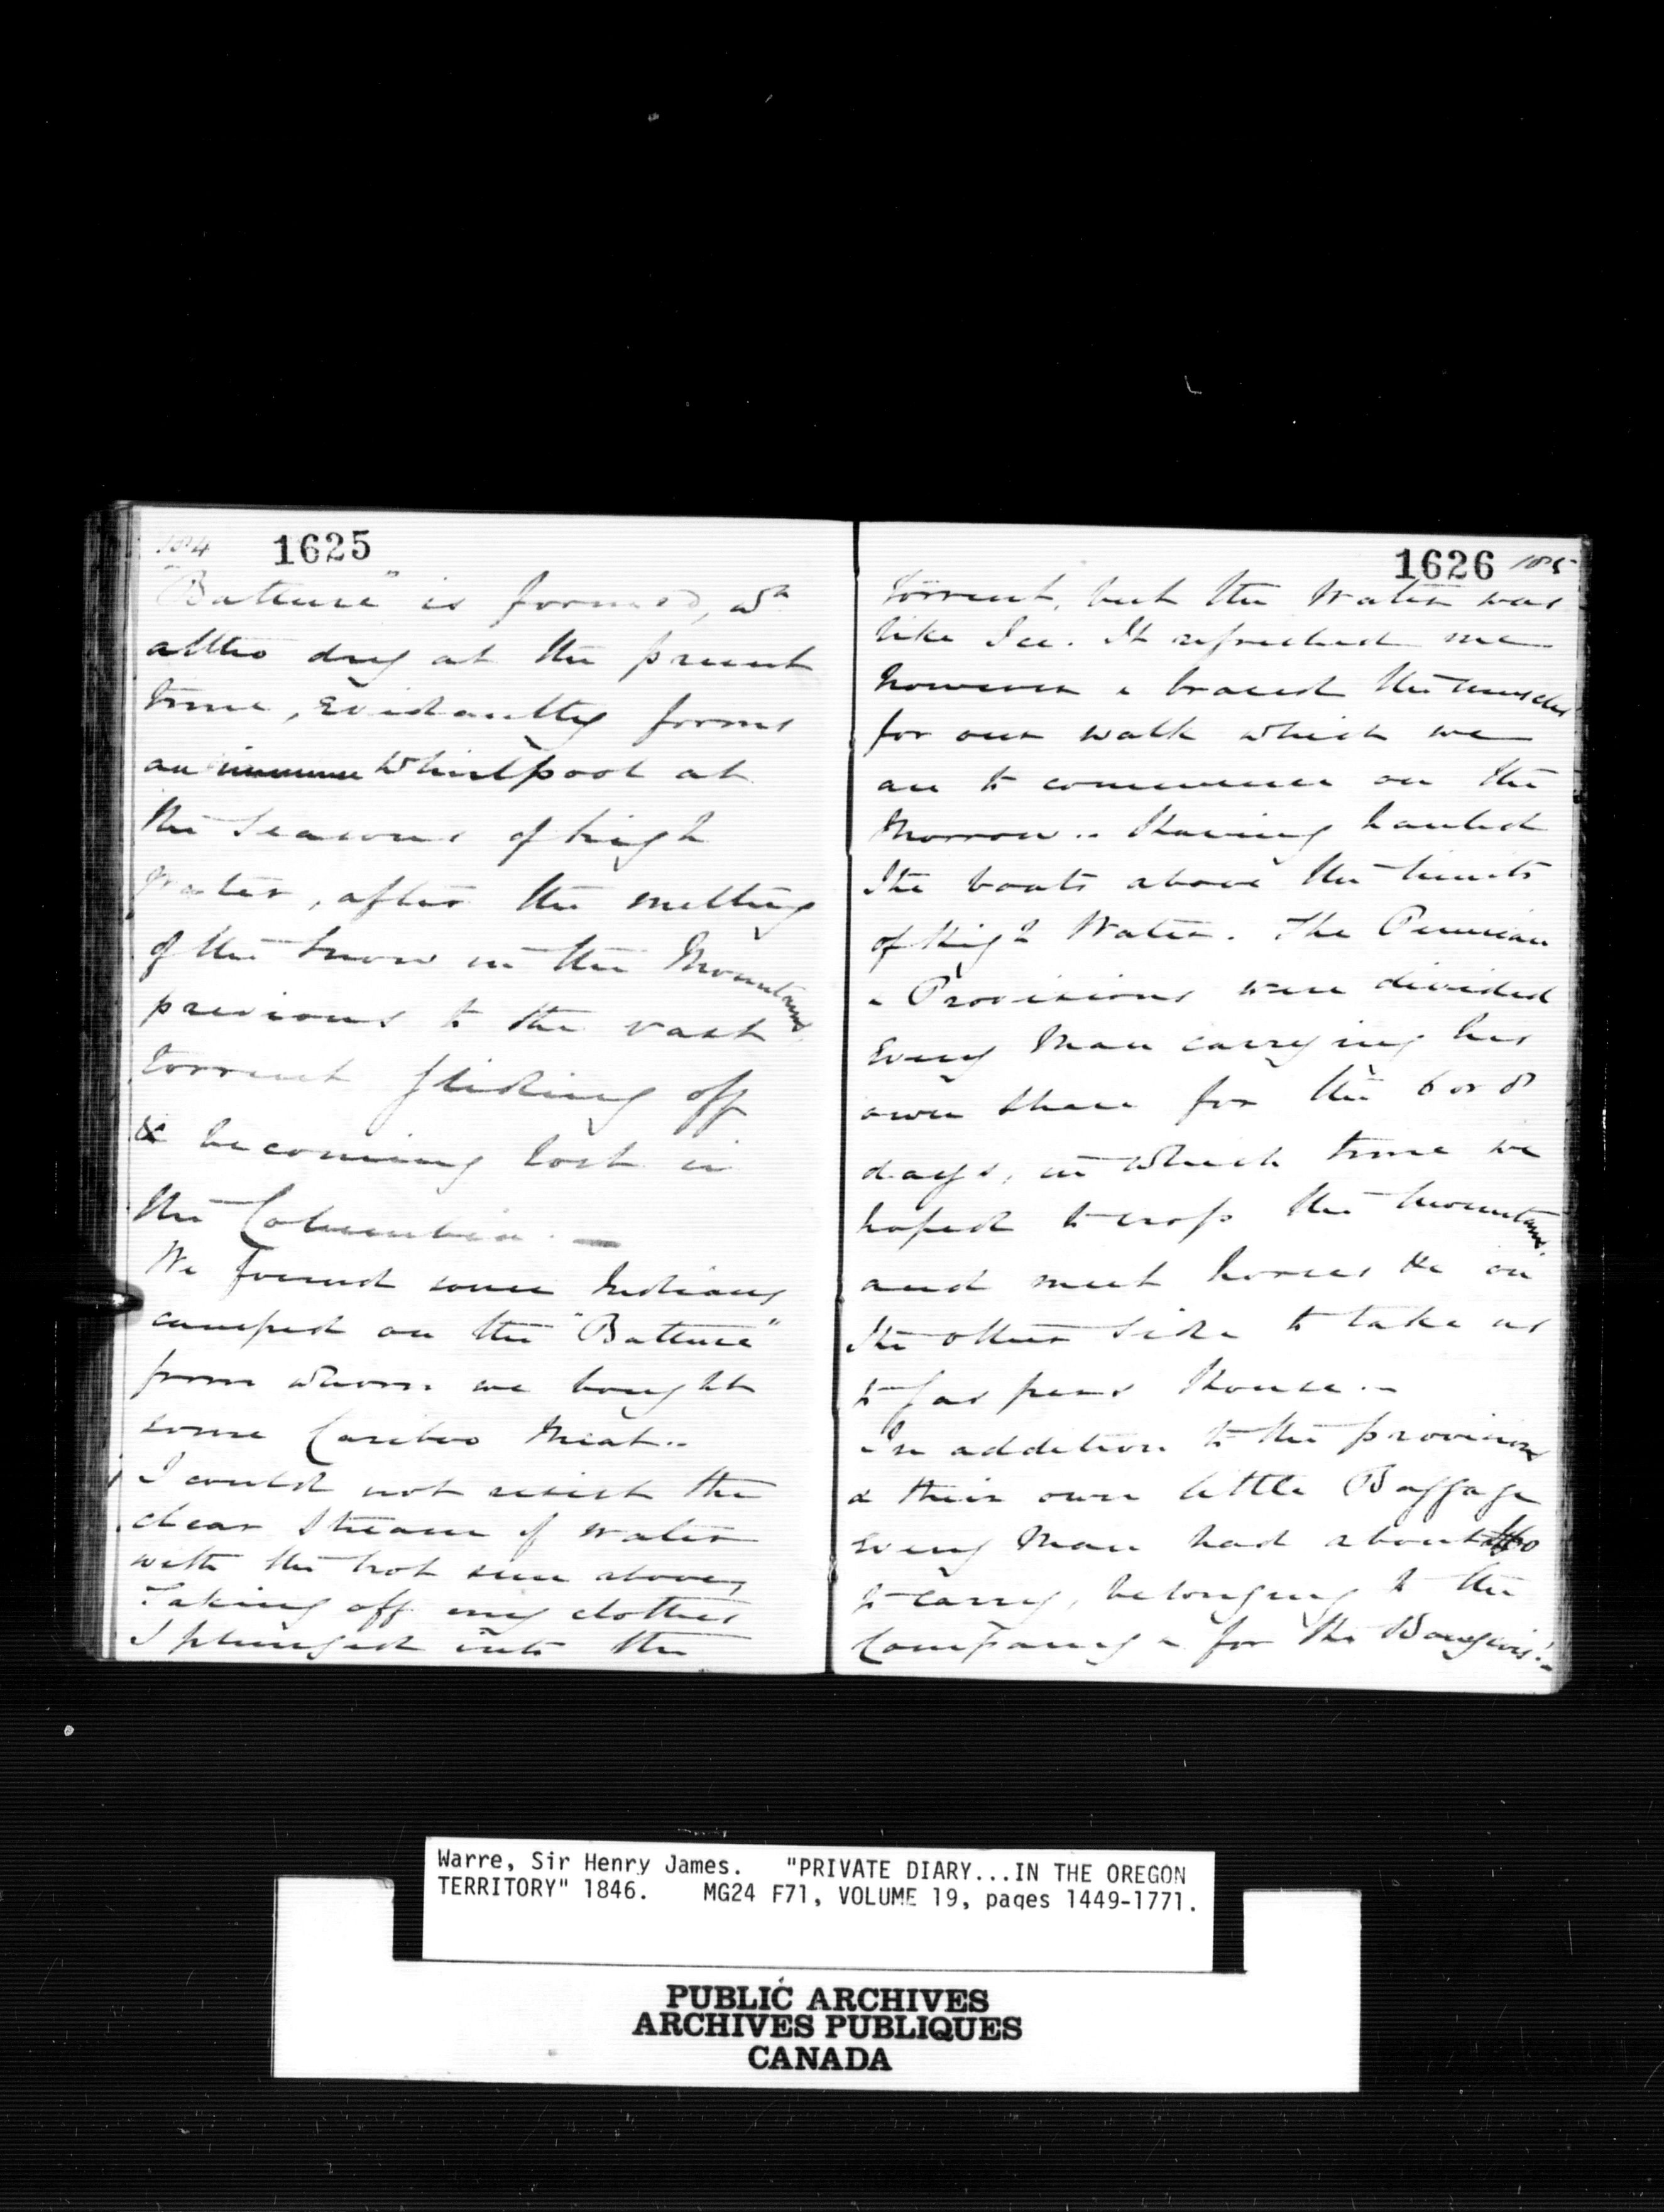 184 1625
"Batture" is formed, wh
altho dry at the present
time, evidently forms
an immense Whirlpool at
the Seasons of high
Water, after the melting
of the Snow in the Mountains
previous to the vast
torrent gliding off
& becoming lost in
the Columbia. —
We found some Indians
camped on the "Batture"
from whom we bought
some Cariboo Meat..
I could not resist the
clear Stream of water
with the hot sun above,
Taking off my clothes
I plunged into the
1626 185
torrent, but the Water was
like Ice. It refreshed me
however & braced the muscles
for our walk which we
are to commence on the
Morrow.. Having hauled
the boats above the limits
of High Water. The Pemican
& Provisions were divided
Every Man carrying his
own share for the 6 or 8
days, in which time we
hoped to cross the Mountains,
and meet horses &c on
the other side to take us
to Jaspers House..
In addition to the provisions
& their own little Baggage
every Man had about
to carry, belonging to the
Company & for the Bourgeois!..
Warre, Sir Henry James. "PRIVATE DIARY...IN THE OREGON
TERRITORY" 1846. MG24 F71, VOLUME 19, pages 1449-1771.
PUBLIC ARCHIVES
ARCHIVES PUBLIQUES
CANADA